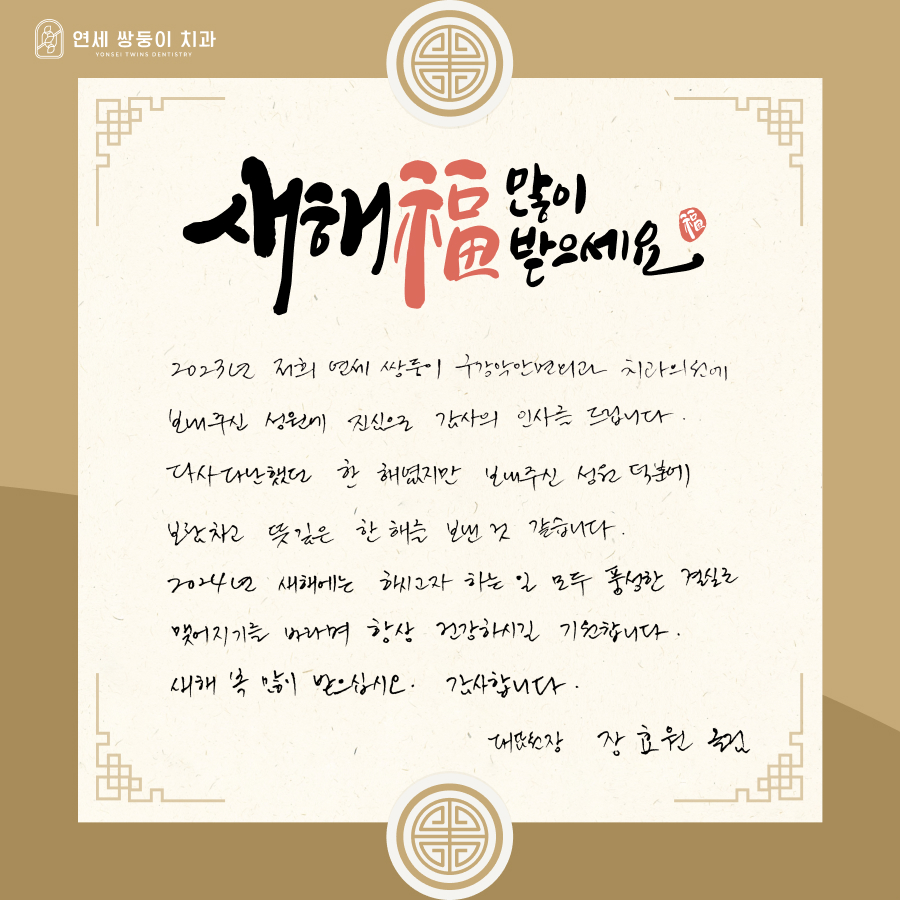 연세 쌍둥이 치과
YONSEI TWINS DENTISTRY
새해 福 많이
받으세요 福
2023년 저희 연세 쌍둥이 구강악안면외과 치과의원에
보내주신 성원에 진심으로 감사의 인사를 드립니다.
다사다난했던 한 해였지만 보내주신 성원 덕분에
보람차고 뜻깊은 한 해를 보낸 것 같습니다.
2024년 새해에는 하시고자 하는 일 모두 풍성한 결실로
맺어지기를 바라며 항상 건강하시길 기원합니다.
새해 복 많이 받으십시오. 감사합니다.
대표원장 장효원 올림